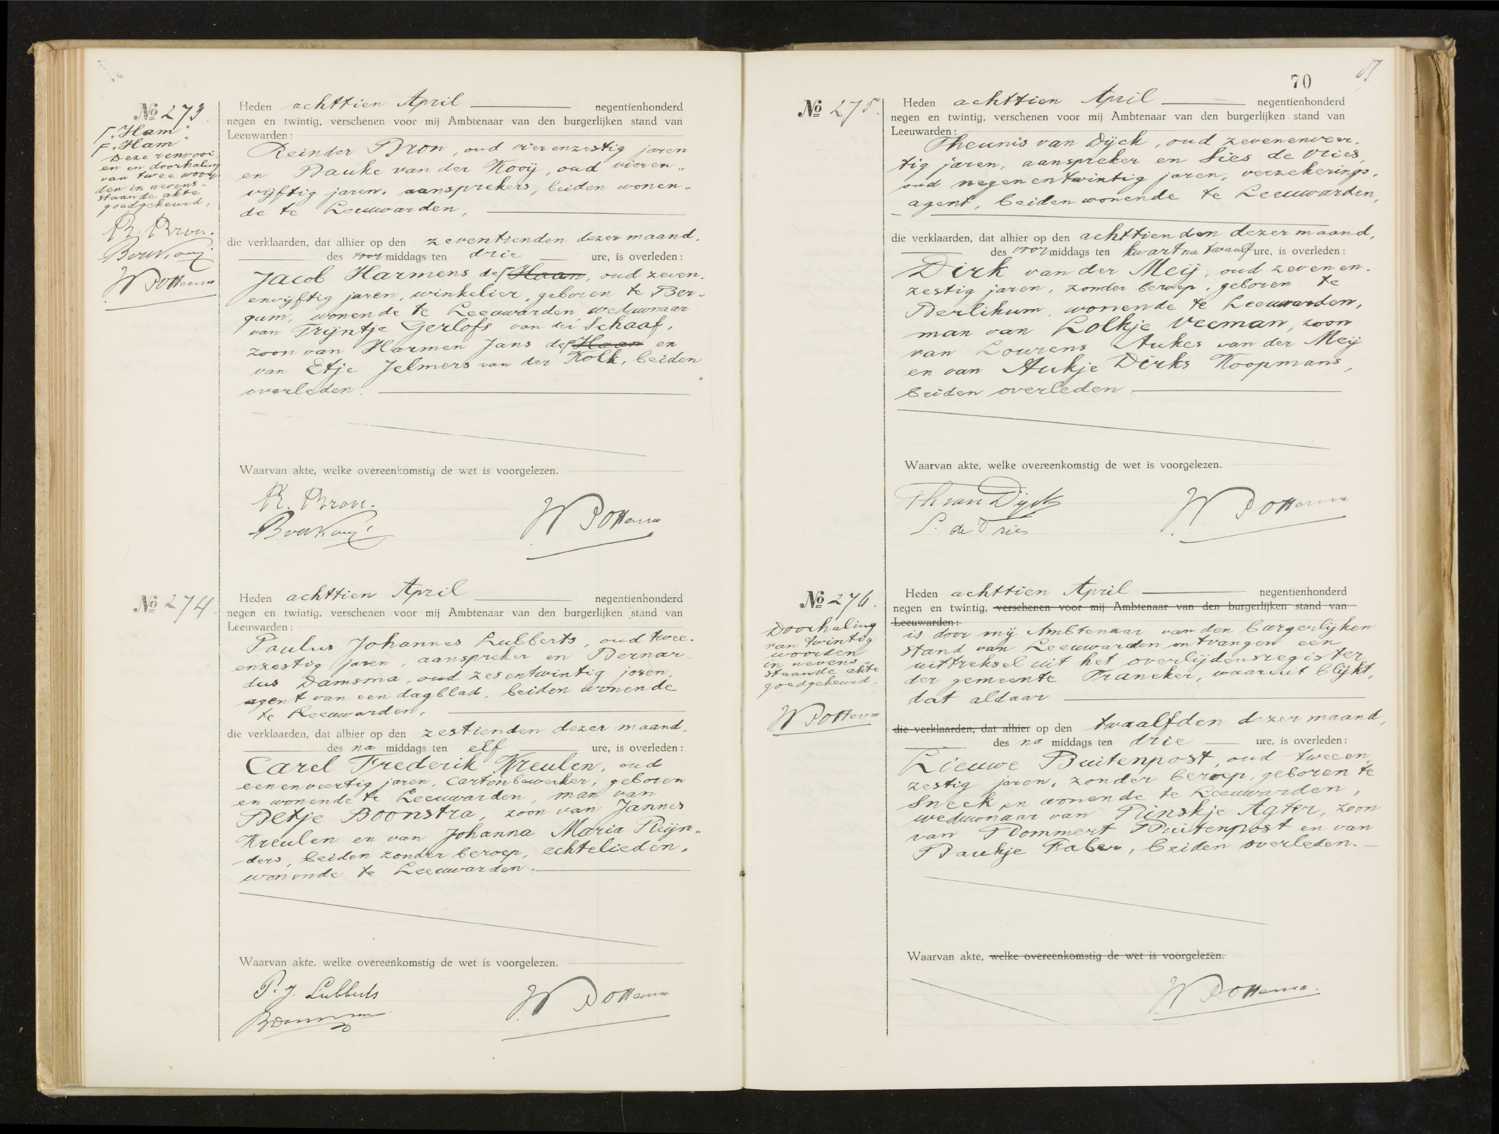 Nº 273.
Γ. Ham:
Γ. Ham
Deze renvooi
en en doorhaling
van twee woor
den in nevens-
staande akte
goedgekeurd,
R. Bron.
BvdKooij
W Pottema
Heden achttien April negentienhonderd
negen en twintig, verschenen voor mij Ambtenaar van den burgerlijken stand van
Leeuwarden:
Reinder Bron, oud vierenzestig jaren
en Bauke van der Kooij, oud vieren-
vijftig jaren, aansprekers, beiden wonen-
de te Leeuwarden,
die verklaarden, dat alhier op den zeventienden dezer maand,
des voormiddags ten drie ure, is overleden:
Jacob Harmens de Γ Haan, oud zeven-
envijftig jaren, winkelier, geboren te Ber-
gum, wonende te Leeuwarden, weduwnaar
van Trijntje Gerlofs van der Schaaf,
zoon van Harmen Jans de Γ Haan en
van Etje Jelmers van der Kolk, beiden
overleden.
Waarvan akte, welke overeenkomstig de wet is voorgelezen.
R. Bron.
BvdKooij
W Pottema
Nº 274.
Heden achttien April negentienhonderd
negen en twintig, verschenen voor mij Ambtenaar van den burgerlijken stand van
Leeuwarden:
Paulus Johannes Lubberts, oud twee-
enzestig jaren, aanspreker en Bernar-
dus Damsma, oud zesentwintig jaren,
agent van een dagblad, beiden wonende
te Leeuwarden,
die verklaarden, dat alhier op den zestienden dezer maand,
des na middags ten elf ure, is overleden:
Carel Frederik Kreulen, oud
eenenveertig jaren, cartonbewerker, geboren
en wonende te Leeuwarden, man van
Detje Boonstra, zoon van Jannes
Kreulen en van Johanna Maria Reijn-
ders, beiden zonder beroep, echtelieden,
wonende te Leeuwarden.
Waarvan akte, welke overeenkomstig de wet is voorgelezen.
P. J. Lubberts
BDamsma
W Pottema
70
Nº 275.
Heden achttien April negentienhonderd
negen en twintig, verschenen voor mij Ambtenaar van den burgerlijken stand van
Leeuwarden:
Theunis van Dijck, oud zevenenveer-
tig jaren, aanspreker en Sies de Vries,
oud negenentwintig jaren, verzekerings-
agent, beiden wonende te Leeuwarden,
die verklaarden, dat alhier op den achttienden dezer maand,
des voormiddags ten kwart na twaalf ure, is overleden:
Dirk van der Meij, oud zevenen-
zestig jaren, zonder beroep, geboren te
Berlikum, wonende te Leeuwarden,
man van Lolkje Veeman, zoon
van Lourens Aukes van der Meij
en van Aukje Dirks Koopmans,
beiden overleden.
Waarvan akte, welke overeenkomstig de wet is voorgelezen.
Th van Dijck
S. de Vries
W Pottema
Nº 276.
Doorhaling
van twintig
woorden
in nevens
staande akte
goedgekeurd.
W Pottema
Heden achttien April negentienhonderd
negen en twintig, verschenen voor mij Ambtenaar van den burgerlijken stand van
Leeuwarden:
is door mij Ambtenaar van den burgerlijken
stand van Leeuwarden ontvangen een
uittreksel uit het overlijdensregister
der gemeente Franeker, waaruit blijkt,
dat aldaar
die verklaarden, dat alhier op den twaalfden dezer maand,
des na middags ten drie ure, is overleden:
Lieuwe Buitenpost, oud tweeen-
zestig jaren, zonder beroep, geboren te
Sneek en wonende te Leeuwarden,
weduwnaar van Rinskje Agter, zoon
van Pommert Buitenpost en van
Baukje Faber, beiden overleden.
Waarvan akte, welke overeenkomstig de wet is voorgelezen.
W Pottema.